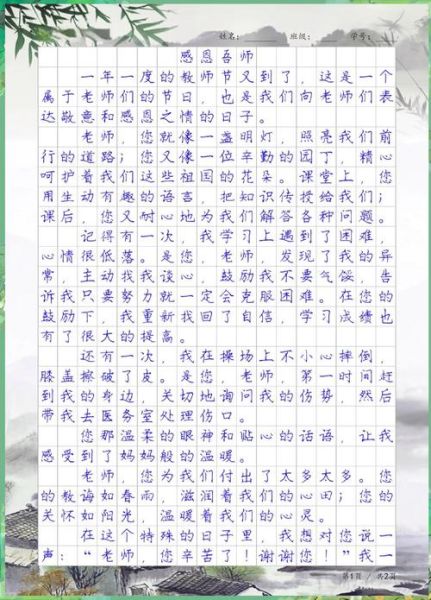 姓名： 班级： 学号：
感恩吾师
一年一度的教师节又到了，这是一个
属于老师们的节日，也是我们向老师们表
达敬意和感恩之情的日子。
老师，您就像一盏明灯，照亮我们前
行的道路；您又像一位辛勤的园丁，精心
呵护着我们这些祖国的花朵。课堂上，您
用生动有趣的语言，把知识传授给我们；
课后，您又耐心地为我们解答各种问题。
记得有一次，我学习上遇到了困难，
心情很低落。是您，老师，发现了我的异
常，主动找我谈心，鼓励我不要气馁，告
诉我只要努力就一定会克服困难。在您的
鼓励下，我重新找回了自信，学习成绩也
有了很大的提高。
还有一次，我在操场上不小心摔倒，
膝盖擦破了皮。是您，老师，第一时间赶
到我的身边，关切地询问我的伤势，然后
带我去医务室处理伤口。
您那温柔的眼神和贴心的话语，让我
感受到了妈妈般的温暖。
老师，您为我们付出了太多太多。您
的教诲如春雨，滋润着我们的心田；您的
关怀如阳光，温暖着我们的心灵。
在这个特殊的日子里，我想对您说一
声：“老师，您辛苦了！谢谢您！”我一
第1页 / 共2页